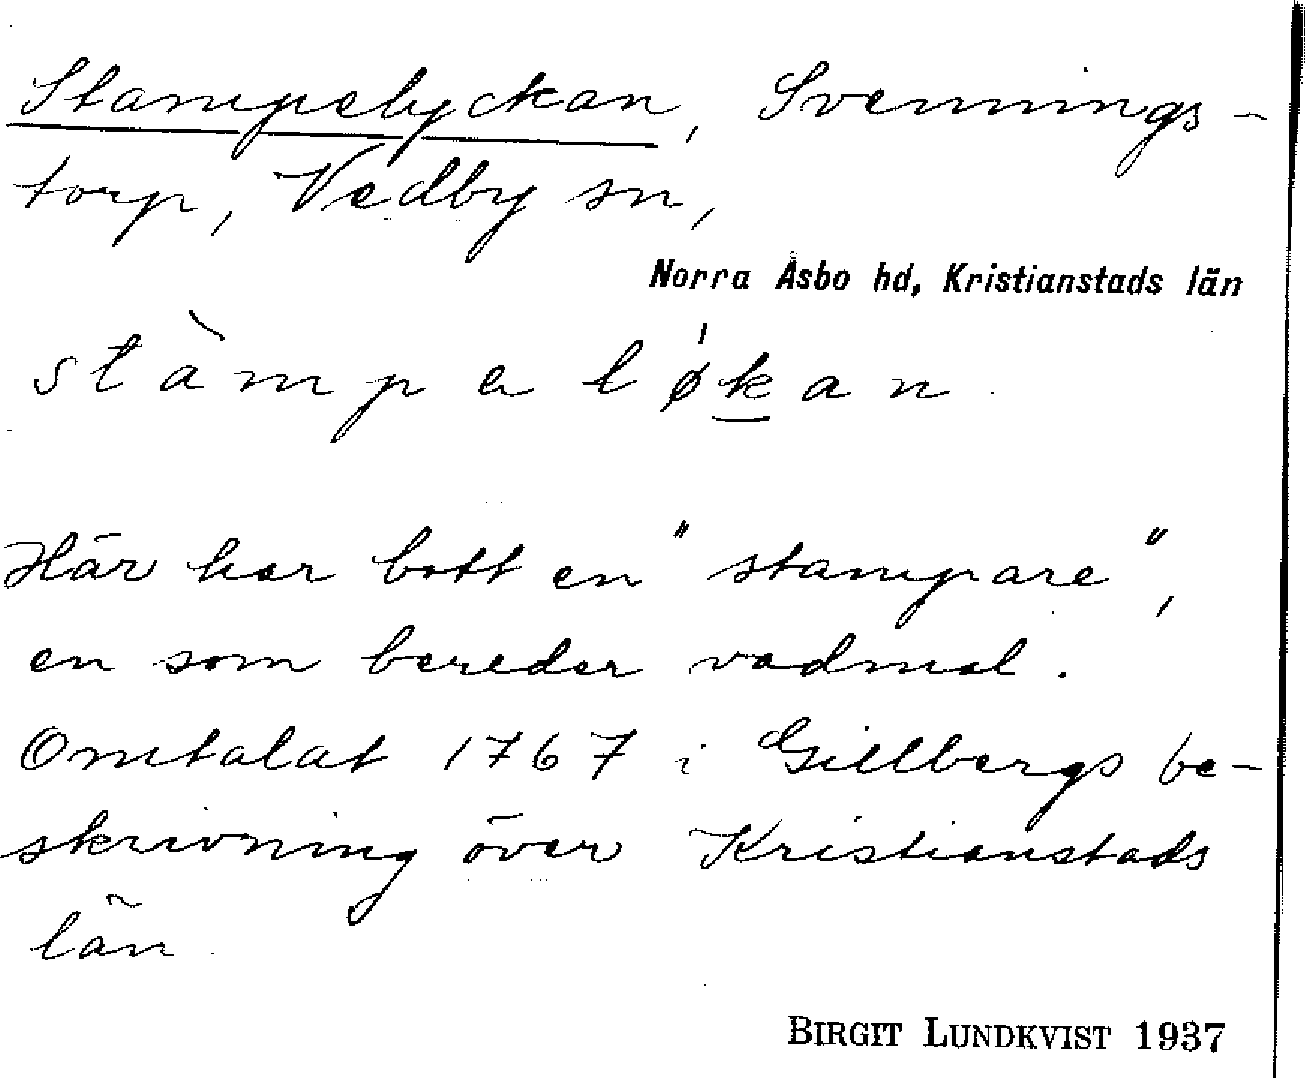 Stampelyckan, Svennings-
torp, Vedby sn,
Norra Åsbo hd, Kristianstads län
stàmpəlǿkan
Här har bott en "stampare",
en som bereder vadmal.
Omtalat 1767 i Gillbergs be-
skrivning över Kristianstads
län
BIRGIT LUNDKVIST 1937